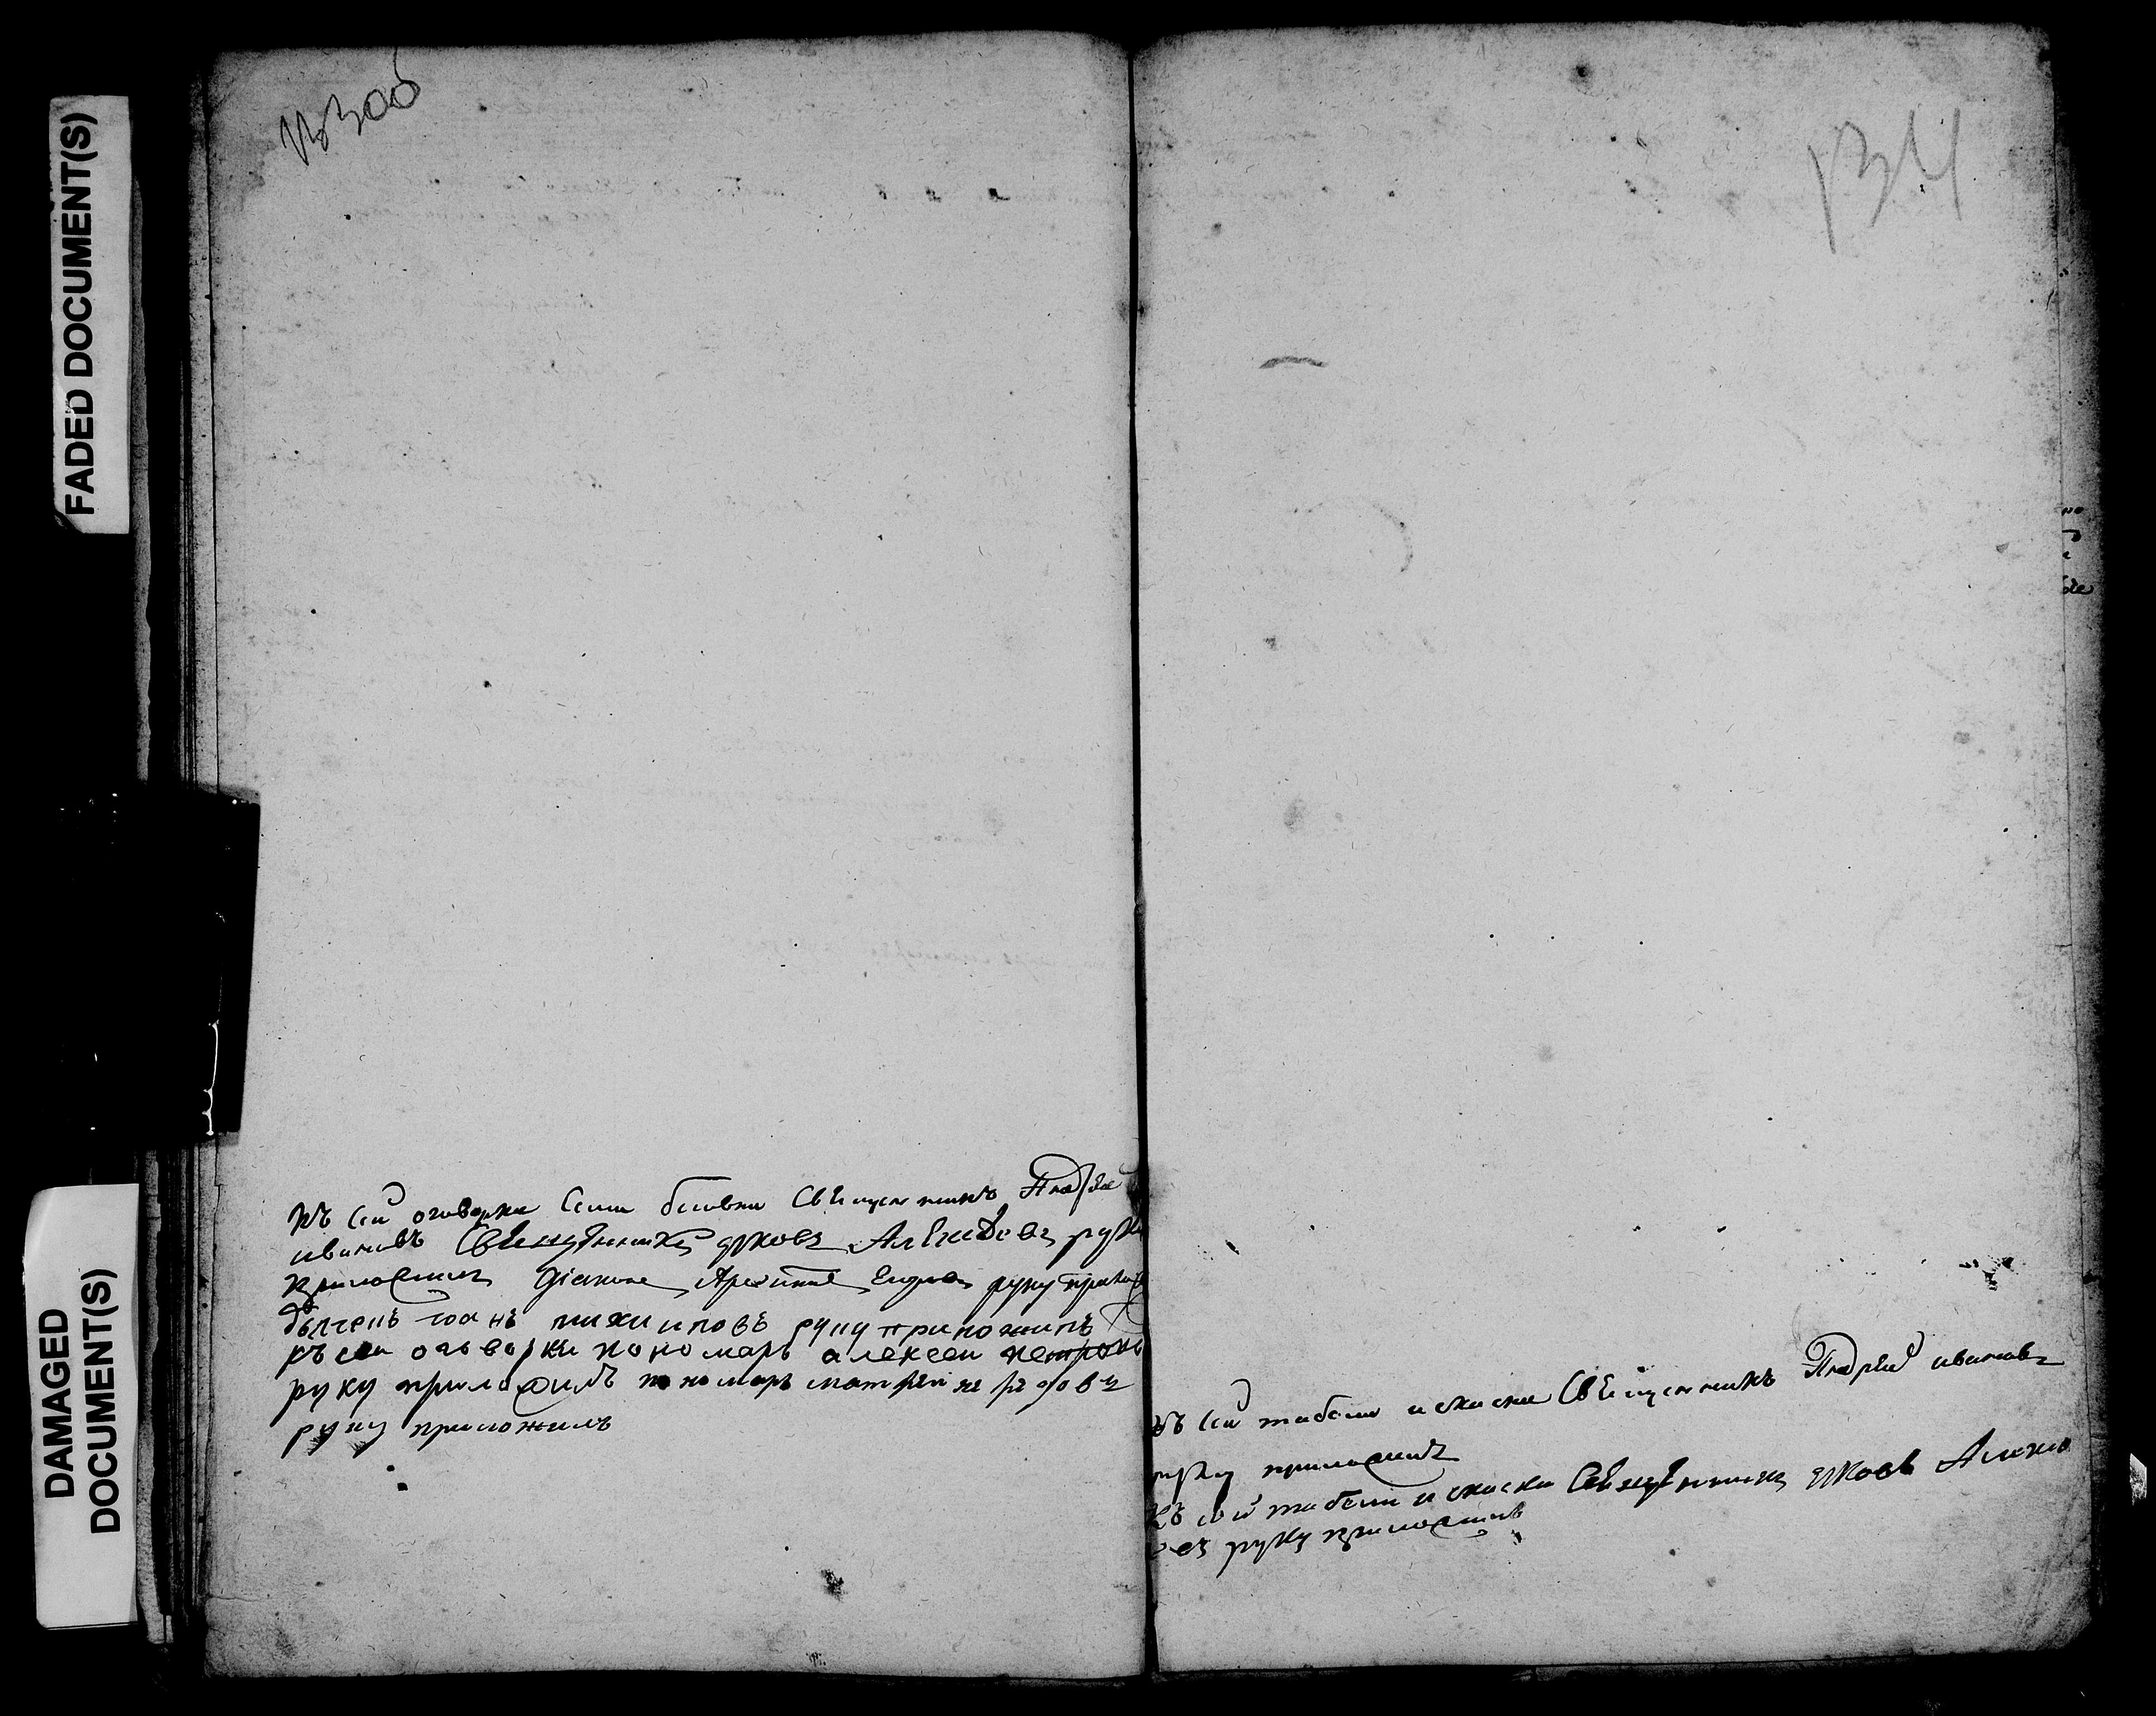 FADED DOCUMENT(S)
DAMAGED
DOCUMENT(S)
133об
къ сей оговорки священникъ Андрей
ивановъ Священникъ яковъ Алексеевъ руку
приложилъ диаконъ руку прило
руку приложилъ
къ сеи оговорки пономарь алексеи петровъ
руку приложилъ пономарь матфеи
руку приложилъ
134
къ сей табели и скаски Священникъ Андрей ивановъ
руку приложилъ
Къ сей табели и скаски Священникъ яковъ Алексе
евъ руку приложилъ